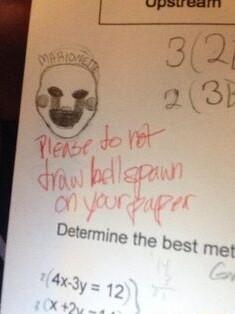 Upstream
MARIONETTE
3(2
2(3
Please do not
draw hellspawn
on your paper
Determine the best met
(4x-3y = 12)
(x +2y